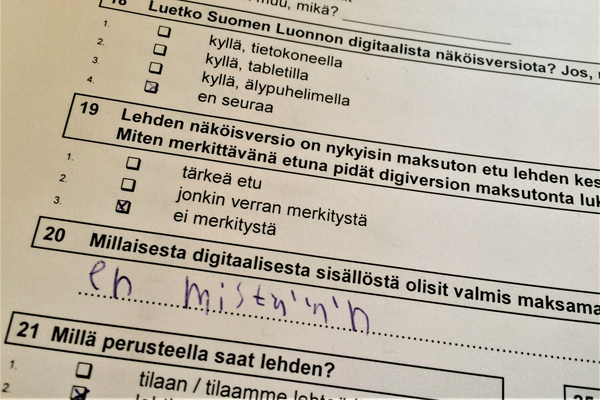 muu, mikä?
18 Luetko Suomen Luonnon digitaalista näköisversiota? Jos,
1. kyllä, tietokoneella
2. kyllä, tabletilla
3. kyllä, älypuhelimella
4. en seuraa
19 Lehden näköisversio on nykyisin maksuton etu lehden kes
Miten merkittävänä etuna pidät digiversion maksutonta luk
1. tärkeä etu
2. jonkin verran merkitystä
3. ei merkitystä
20 Millaisesta digitaalisesta sisällöstä olisit valmis maksama
en mistään
21 Millä perusteella saat lehden?
1. tilaan / tilaamme
2.